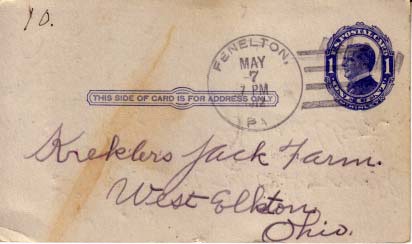 10.
U.S. POSTAL CARD
1 1
ONE CENT
FENELTON,
MAY
7
7 PM
PA
THIS SIDE OF CARD IS FOR ADDRESS ONLY
Kreklers Jack Farm.
West Elkton
Ohio.